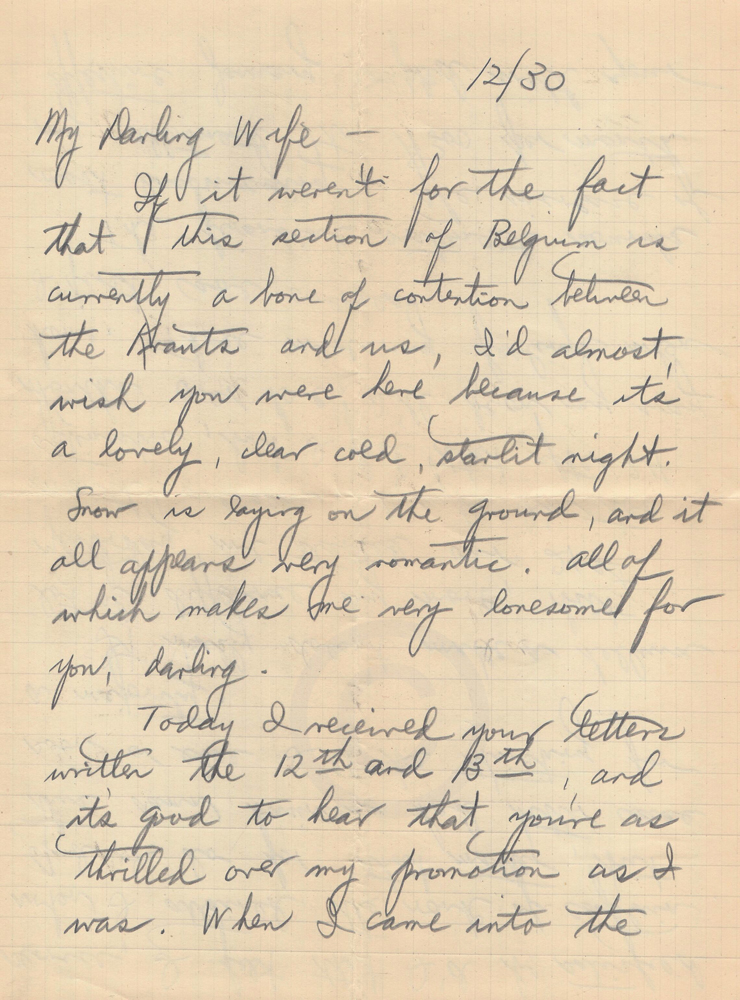 12/30
My Darling Wife —
If it weren't for the fact
that this section of Belgium is
currently a bone of contention between
the Krauts and us, I'd almost
wish you were here because it's
a lovely, clear cold, starlit night.
Snow is laying on the ground, and it
all appears very romantic. All of
which makes me very lonesome for
you, darling.
Today I received your letters
written the 12th and 13th, and
it's good to hear that you're as
thrilled over my promotion as I
was. When I came into the